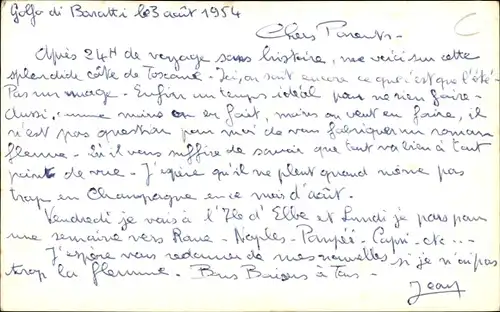 Golfo di Baratti le 3 août 1954
Chers Parents -
Après 24H de voyage sans histoire, me voici sur cette
splendide côte de Toscane - Ici, on sait encore ce que c'est que l'été -
Pas un nuage - Enfin un temps idéal pour ne rien faire -
Aussi, comme moins on en fait, moins on veut en faire, il
n'est pas question pour moi de vous fabriquer un roman
fleuve - Qu'il vous suffise de savoir que tout va bien à tout
point de vue - J'espère qu'il ne pleut quand même pas
trop en Champagne en ce mois d'août -
Vendredi je vais à l'Ile d'Elbe et Lundi je pars pour
une semaine vers Rome - Naples - Pompéi - Capri - etc ...
J'espère vous redonner de mes nouvelles si je n'ai pas
trop la flemme - Bons Baisers à Tous -
Jean